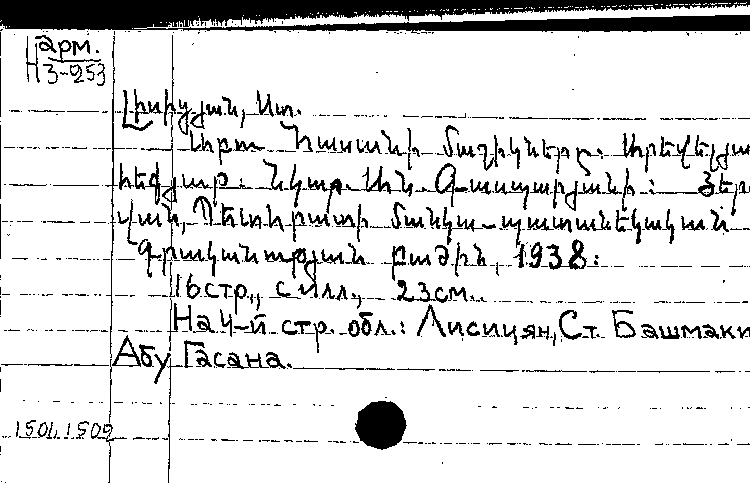 арм.
Н3-253
Լիսիցյան, Ստ.
Աբու Հասանի մաշիկները. Արևելյա
հեքյաթ: Նկար. Ան. Գասպարյանի: Յեր
վան, Պետհրատի մանկա-պատանեկական
գրականության բաժին, 1938:
16 стр., с илл., 23 см.
На 4-й стр. обл.: Лисицян, Ст. Башмаки
Абу Гасана.
1504.1509